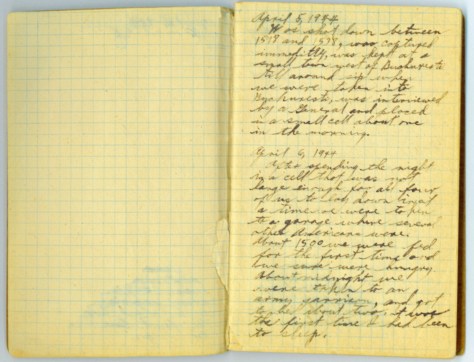 April 5, 1944
Was shot down between
1518 and 1538, was captured
immediatly, was kept at a
small town west of
till around six when
we were taken into
was interviewed
by a General and placed
in a small cell about one
in the morning.
April 6, 1944
After spending the night
in a cell that was not
large enough for all four
of us to lay down at
a time we were taken
to a garage where several
other Americans were.
About 1500 we were fed
for the first time and
we sure were hungry.
About midnight we
were taken to an
army garrison, and got
to bed about two. It was
the first time I had been
to sleep.